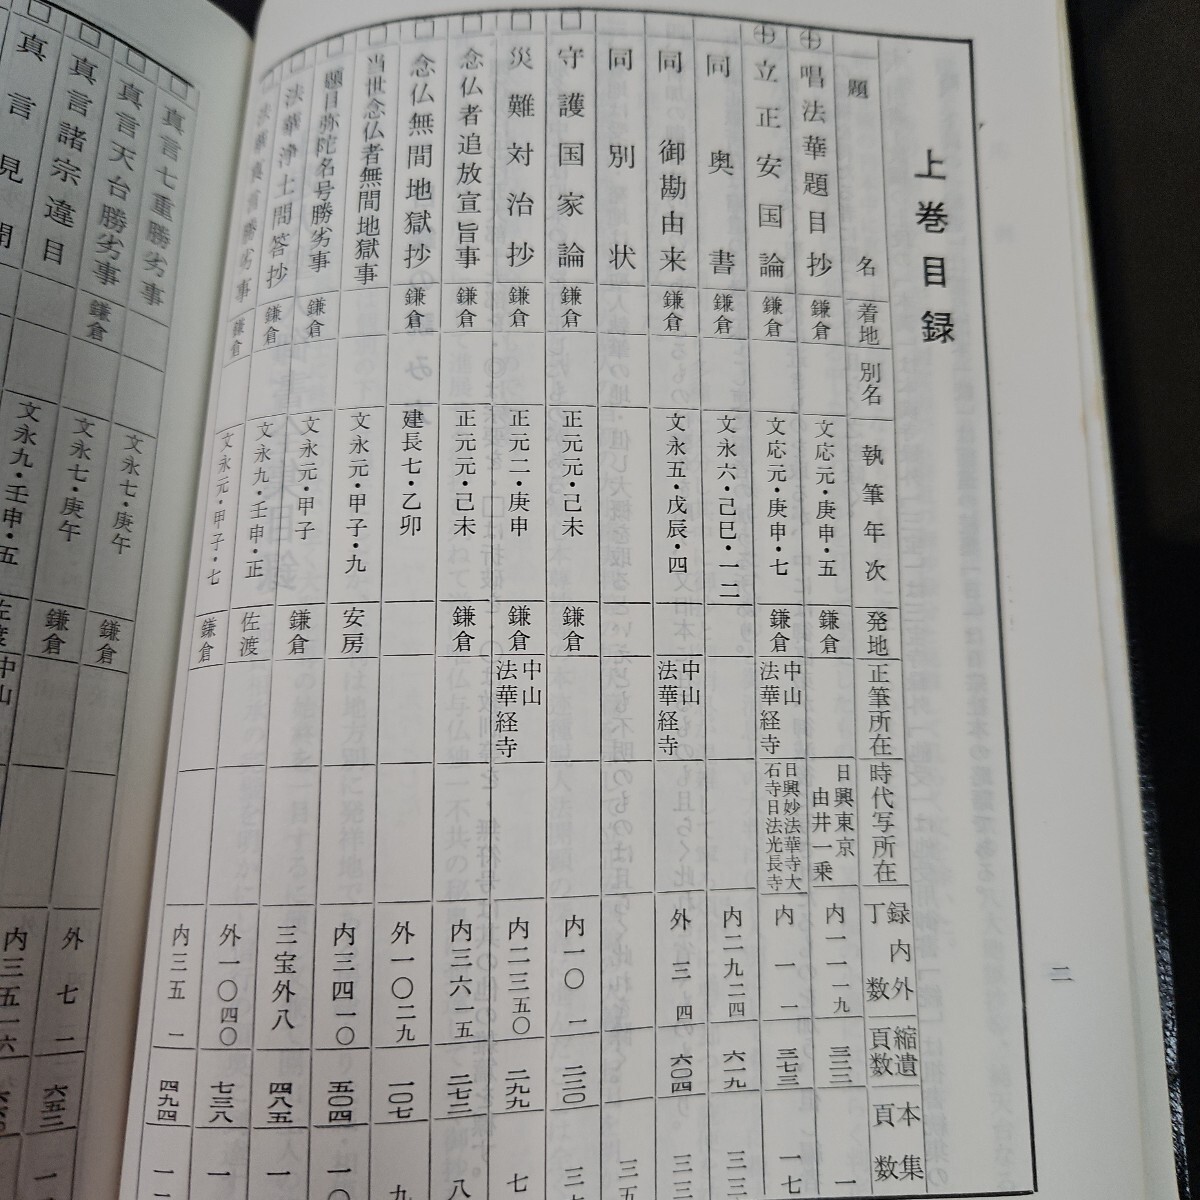 上巻目録
題名 着地 別名 執筆年次 発地 正筆所在 時代写所在 録内外丁数 縮遺頁数 本集頁数
唱法華題目抄 鎌倉 文応元・庚申・五 鎌倉 日興東京由井一乗 内一一 一九 三三三 一
立正安国論 鎌倉 文応元・庚申・七 鎌倉 中山法華経寺 日興妙法華寺大石寺日法光長寺 内一 一 三七三 一七
同奥書 鎌倉 文永六・己巳・一二 内二九 二四 六一九 三三
同御勘由来 鎌倉 文永五・戊辰・四 中山法華経寺 外三 四 六〇四 三三
同別状 三五
守護国家論 鎌倉 正元元・己未 鎌倉 内一〇 一 二三〇
災難対治抄 鎌倉 正元二・庚申 鎌倉 中山法華経寺 内二三 五〇 二九九 七
念仏者追放宣旨事 鎌倉 正元元・己未 鎌倉 内三六 一五 二七二 八
念仏無間地獄抄 鎌倉 建長七・乙卯 外一〇 二九 一〇七 九
当世念仏者無間地獄事 文永元・甲子・九 安房 内三四 一〇 五〇四 一〇
題目弥陀名号勝劣事 鎌倉 文永元・甲子 鎌倉 三宝外八 四八五 一
法華浄土問答抄 鎌倉 文永九・壬申・正 佐渡 外一〇 四〇 七三八 一
法華真言勝劣事 鎌倉 文永元・甲子・七 鎌倉 内三五 一 四九四 一
真言七重勝劣事 文永七・庚午 鎌倉
真言天台勝劣事 鎌倉 文永七・庚午 鎌倉 外七 二 六五三 一
真言諸宗違目 文永九・壬申・五 佐渡 中山 内三五 一六
真言見聞
二